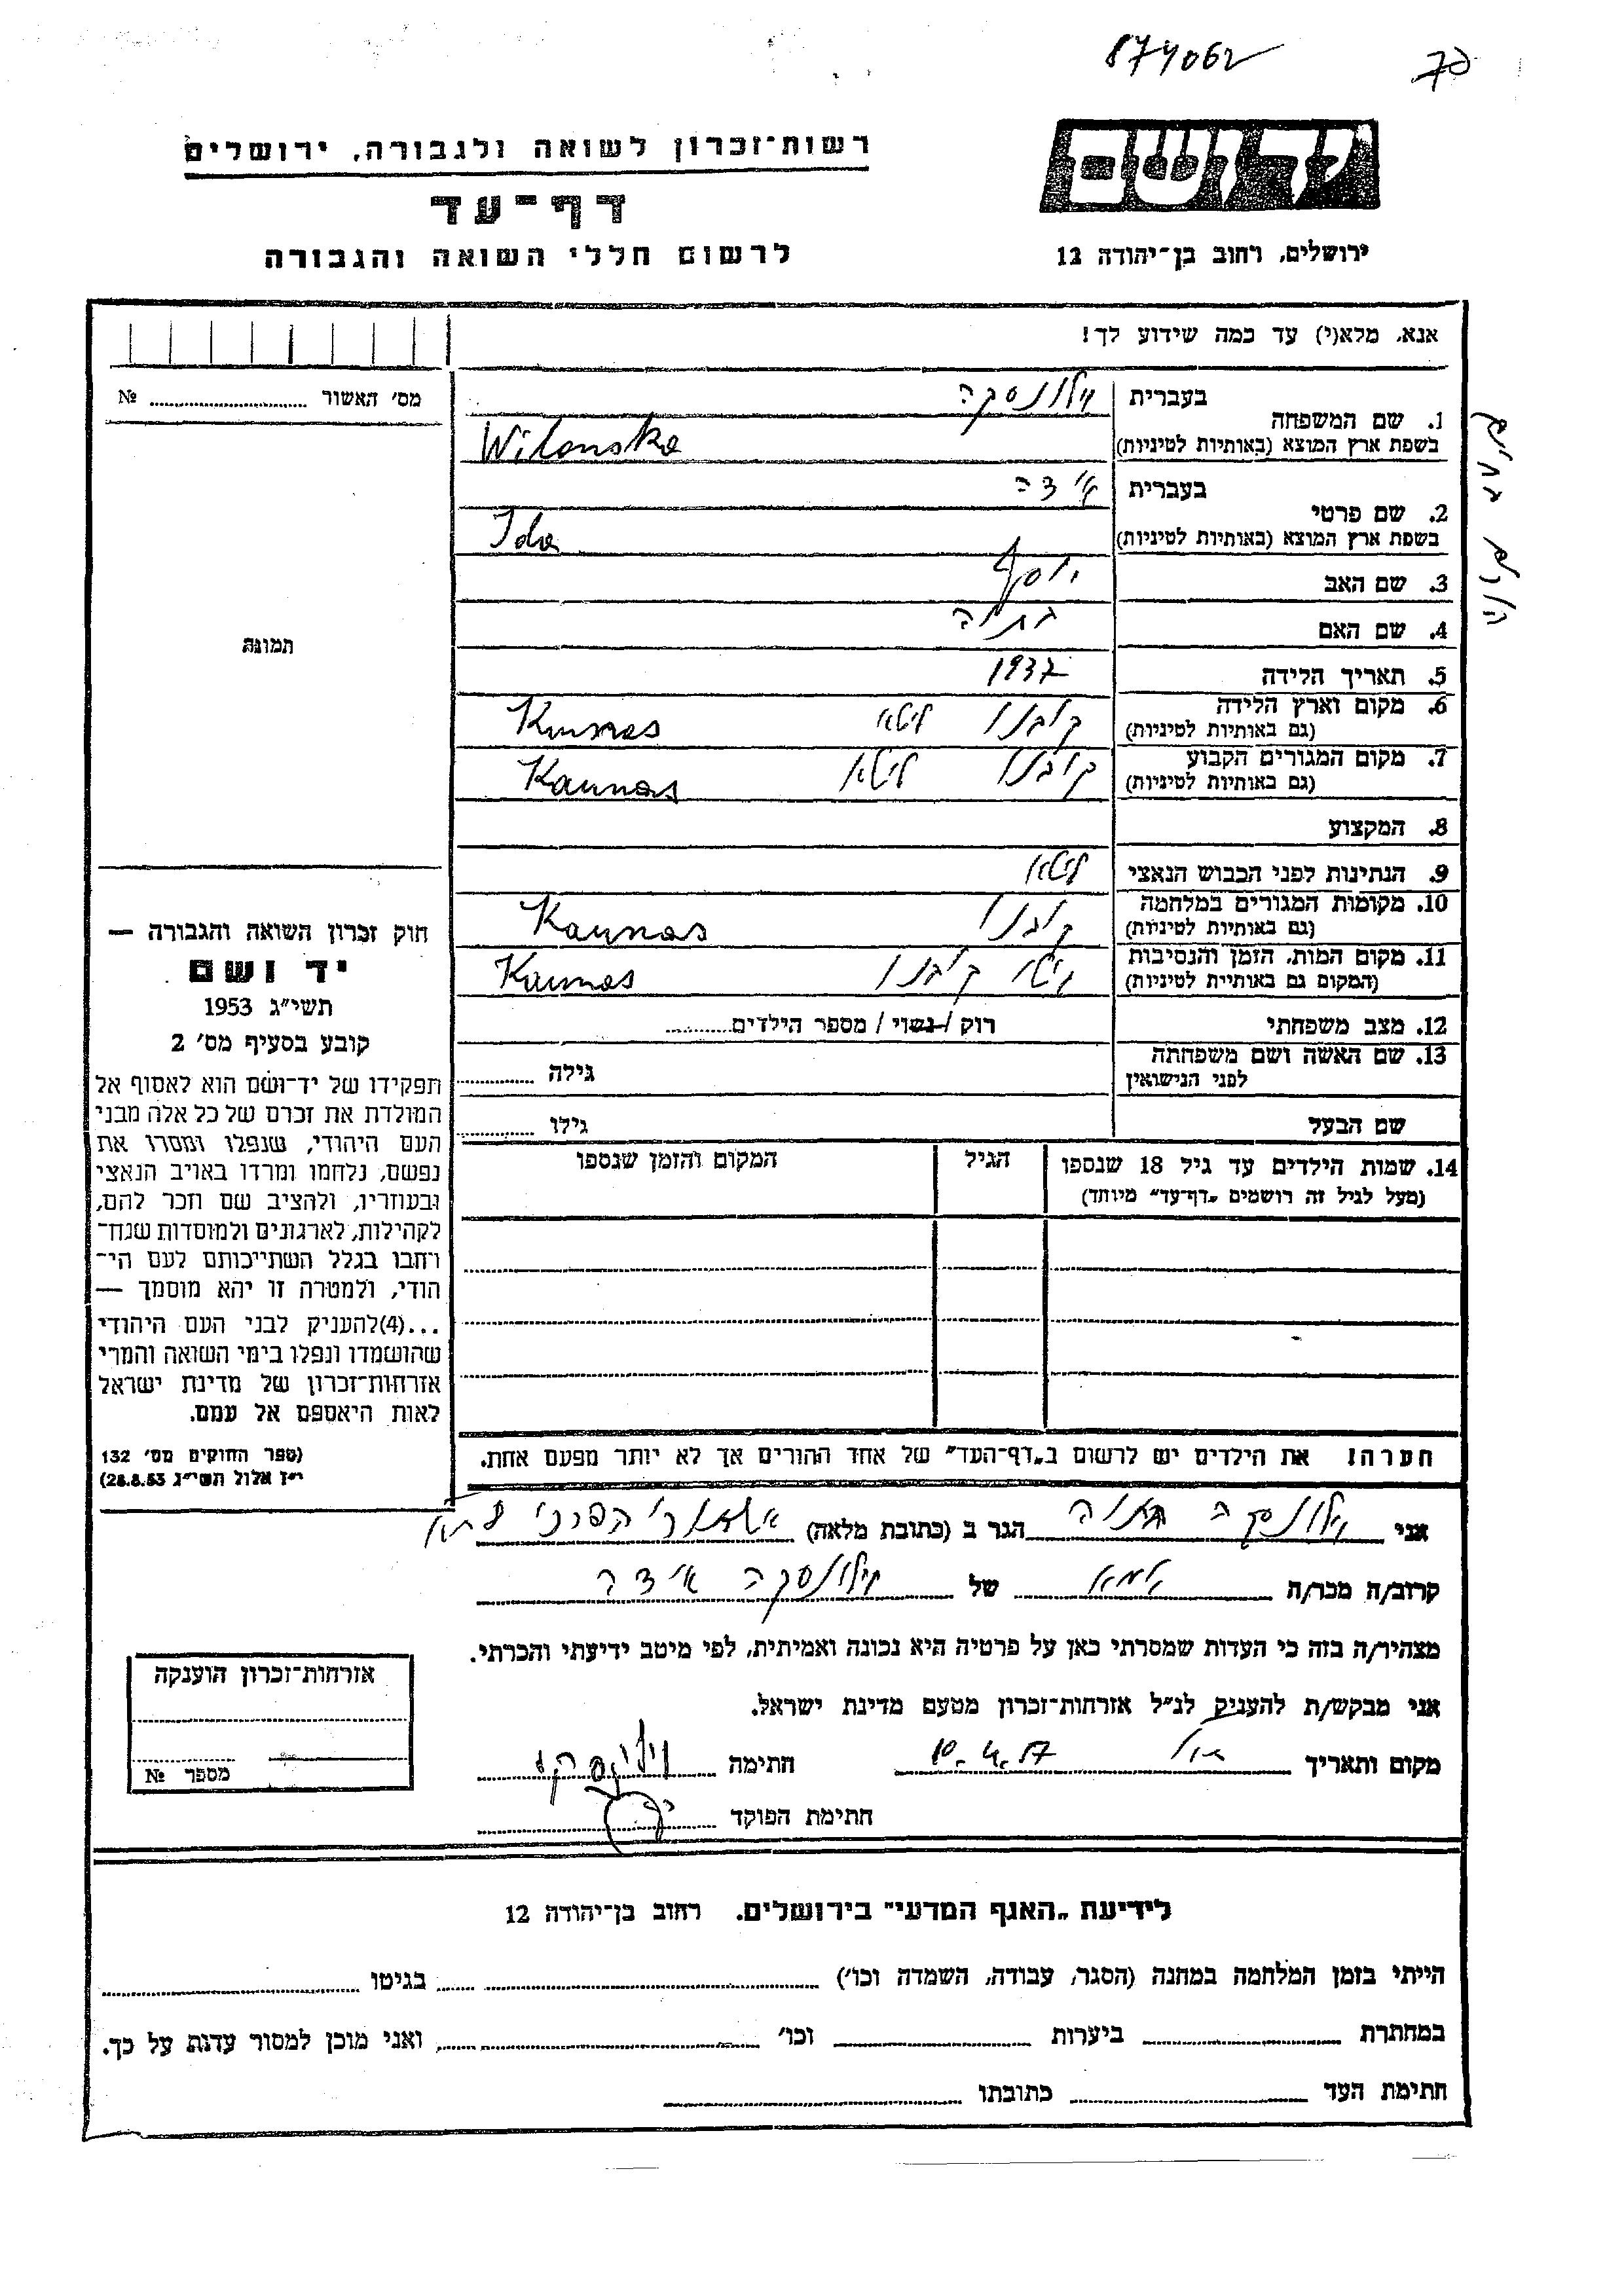 874062
ידושם
רשות־זכרון לשואה ולגבורה, ירושלים
דף־עד
לרשום חללי השואה והגבורה
ירושלים, רחוב בן־יהודה 12
אנא, מלא(י) עד כמה שידוע לך!
מס׳ האשור № 
1. שם המשפחה
בעברית וילונסקה
בשפת ארץ המוצא (באותיות לטיניות) Wilonska
2. שם פרטי
בעברית אידה
בשפת ארץ המוצא (באותיות לטיניות) Ida
3. שם האב יוסף
4. שם האם
5. תאריך הלידה 1937
6. מקום וארץ הלידה קובנו ליטא Kaunas
(גם באותיות לטיניות)
7. מקום המגורים הקבוע קובנו ליטא Kaunas
(גם באותיות לטיניות)
8. המקצוע
9. הנתינות לפני הכבוש הנאצי ליטא
10. מקומות המגורים במלחמה קובנו Kaunas
(גם באותיות לטיניות)
11. מקום המות, הזמן והנסיבות גיטו קובנו Kaunas
(המקום גם באותיית לטיניות)
12. מצב משפחתי רוק / נשוי / מספר הילדים
13. שם האשה ושם משפחתה גילה
לפני הנישואין
שם הבעל גילו
14. שמות הילדים עד גיל 18 שנספו הגיל המקום והזמן שנספו
(מעל לגיל זה רושמים „דף־עד״ מיוחד)
הערה! את הילדים יש לרשום ב„דף־העד״ של אחד ההורים אך לא יותר מפעם אחת.
תמונה
חוק זכרון השואה והגבורה —
יד ושם
תשי״ג 1953
קובע בסעיף מס׳ 2
תפקידו של יד־ושם הוא לאסוף אל
המולדת את זכרם של כל אלה מבני
העם היהודי, שנפלו ומסרו את
נפשם, נלחמו ומרדו באויב הנאצי
ובעוזריו, ולהציב שם וזכר להם,
לקהילות, לארגונים ולמוסדות שנח־
רחבו בגלל השתייכותם לעם הי־
הודי, ולמטרה זו יהא מוסמך —
...(4)להעניק לבני העם היהודי
שהושמדו ונפלו בימי השואה והמרי
אזרחות־זכרון של מדינת ישראל
לאות היאספם אל עמם.
(ספר החוקים מס׳ 132
י״ז אלול תשי״ג 28.8.53)
אני וילונסקה הגר ב (כתובת מלאה)
קרוב/ה מכר/ה אמא של וילונסקה אידה
מצהיר/ה בזה כי העדות שמסרתי כאן על פרטיה היא נכונה ואמיתית, לפי מיטב ידיעתי והכרתי.
אני מבקש/ת להעניק לנ״ל אזרחות־זכרון מטעם מדינת ישראל.
מקום ותאריך 10.4.57 חתימה
חתימת הפוקד
אזרחות־זכרון הוענקה
מספר №
לידיעת „האגף המדעי״ בירושלים, רחוב בן־יהודה 12
הייתי בזמן המלחמה במחנה (הסגר, עבודה, השמדה וכו׳) בגיטו
במחתרת ביערות וכו׳ ואני מוכן למסור עדות על כך.
חתימת העד כתובתו